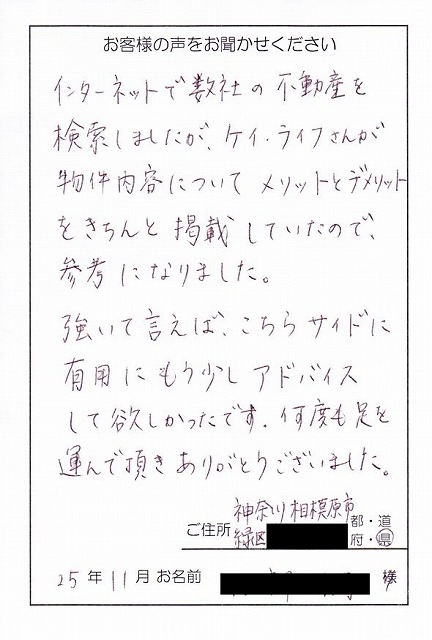 お客様の声をお聞かせください
インターネットで数社の不動産を
検索しましたが、ケイ・ライフさんが
物件内容について メリットとデメリット
をきちんと掲載していたので、
参考になりました。
強いて言えば、こちらサイドに
有用にもう少しアドバイス
して欲しかったです。何度も足を
運んで頂きありがとうございました。
神奈川相模原市 都・道
ご住所 緑区 府・県
25年11月 お名前 様